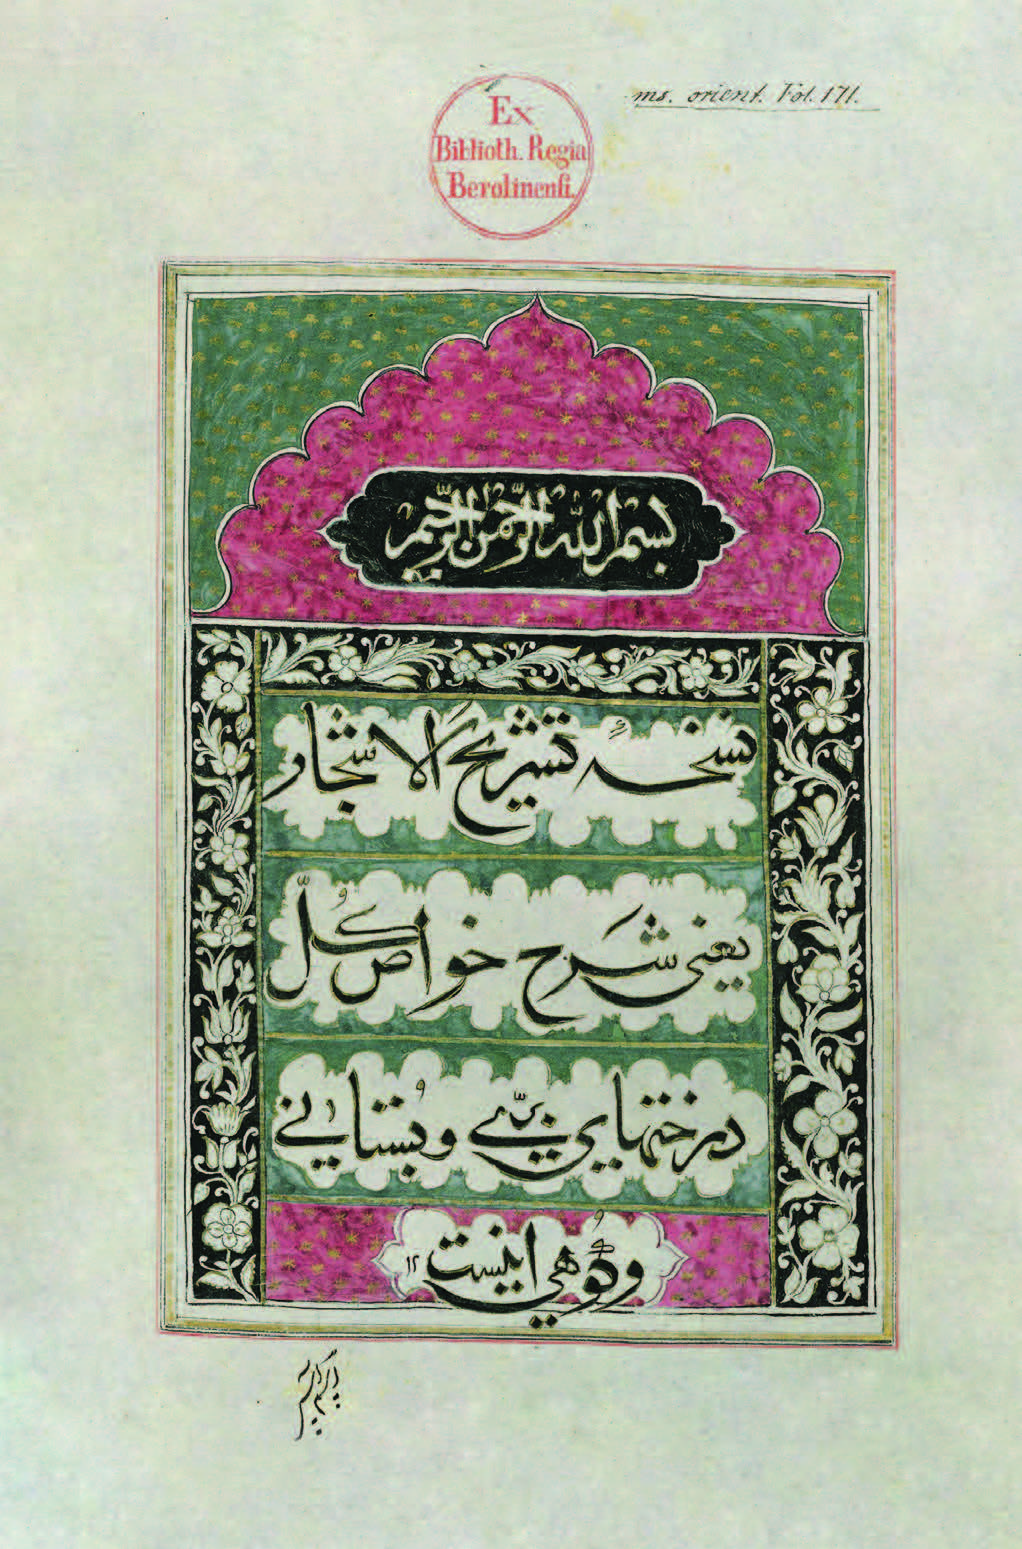 Ex
Biblioth. Regia
Berolinensi.
ms. orient. Fol. 171.
بسم الله الرّحمن الرّحيم
نسخهٔ تشريح الاشجار
يعني شرح خواص كُلّ
درختهاي برّي و بُستاني
وهُوهي اينست ١٢